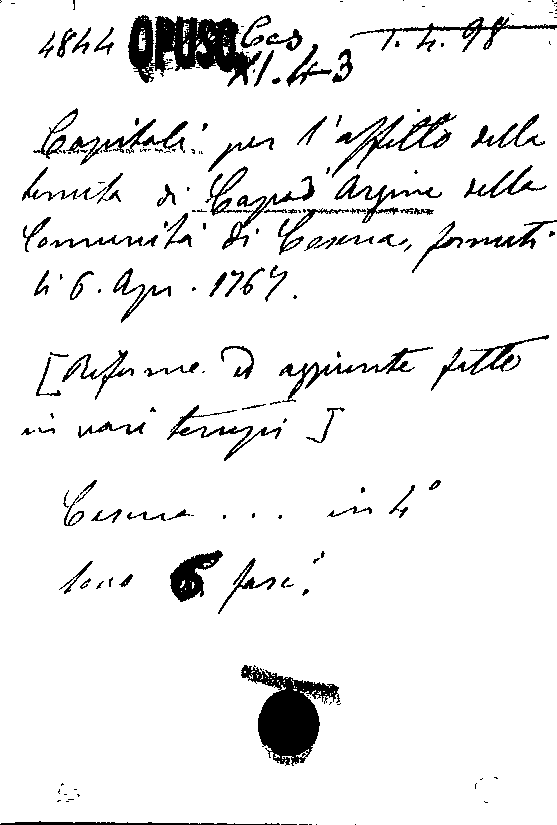 4844 OPUSC Ces 1.4.98
XI.43
Capitoli per l'affitto della
tenuta di Capo d'Argine della
Comunità di Cesena, formati
li 6. Apr. 1767.
[Riforme ed aggiunte fatte
in vari tempi]
Cesena ... in 4°
sono 6 fasc.